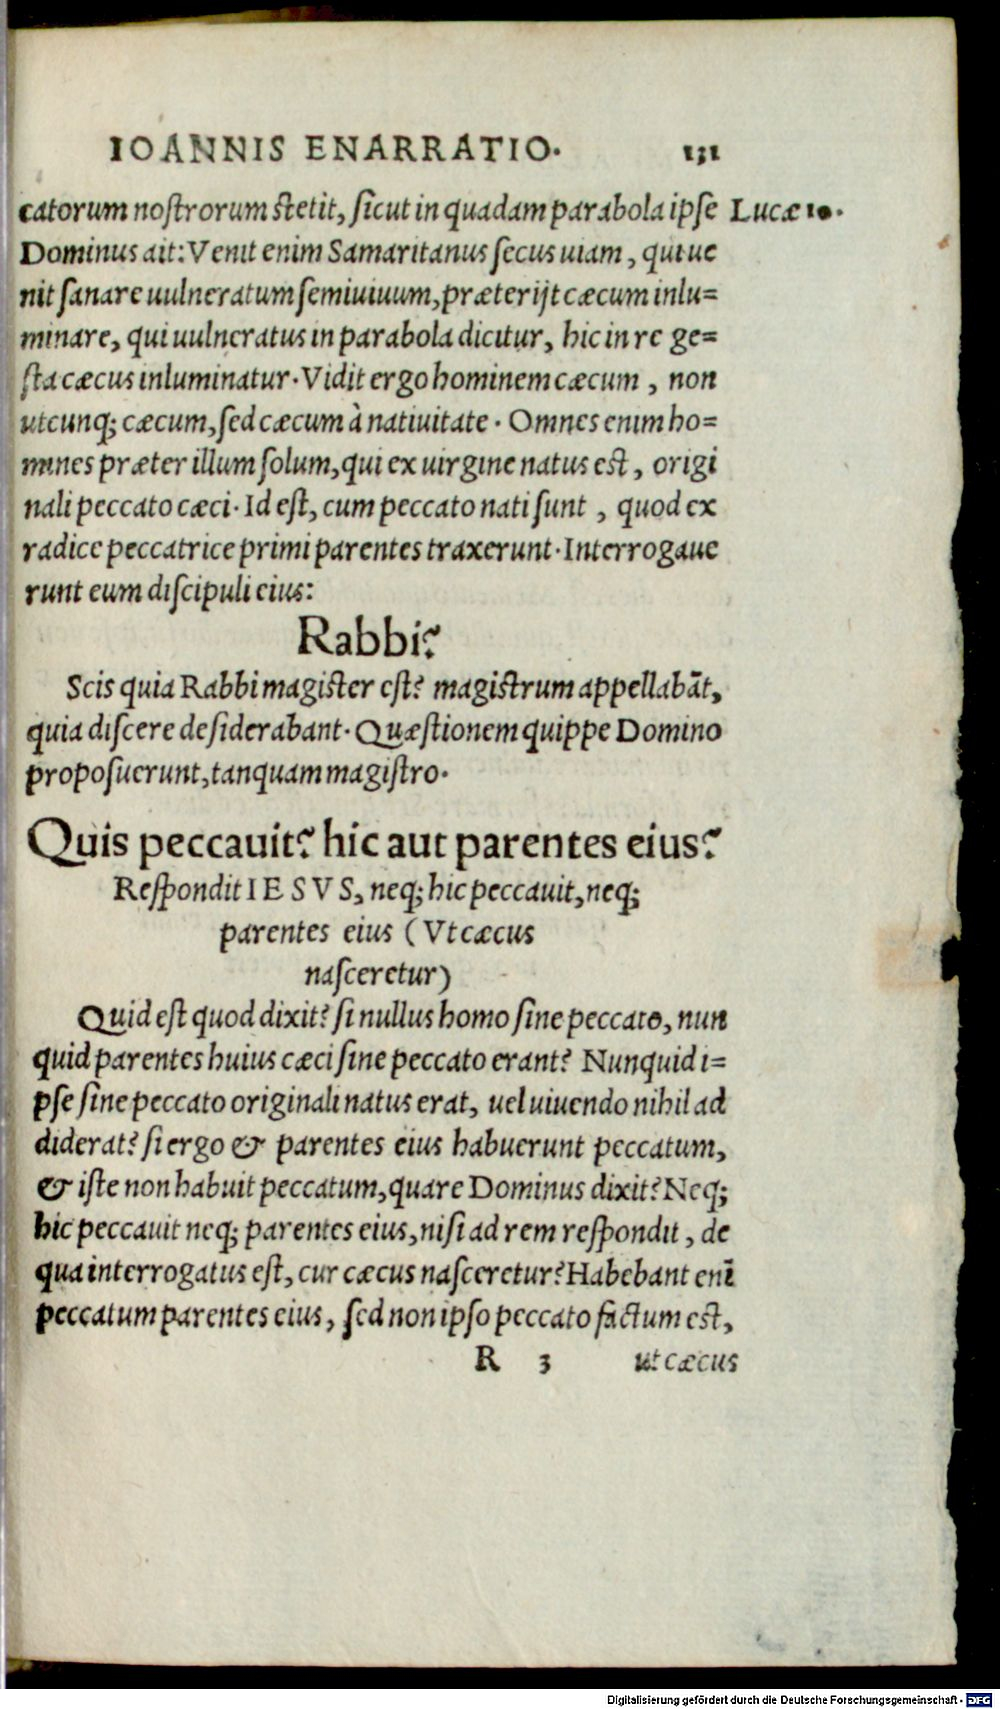 IOANNIS ENARRATIO. 131
catorum nostrorum stetit, sicut in quadam parabola ipse Lucæ 10.
Dominus ait: Venit enim Samaritanus secus uiam, qui ue
nit sanare uulneratum semiuiuum, præterijt cæcum inlu=
minare, qui uulneratus in parabola dicitur, hic in re ge=
sta cæcus inluminatur. Vidit ergo hominem cæcum, non
utcunq; cæcum, sed cæcum à natiuitate. Omnes enim ho=
mines præter illum solum, qui ex uirgine natus est, origi
nali peccato cæci. Id est, cum peccato nati sunt, quod ex
radice peccatrice primi parentes traxerunt. Interrogaue
runt eum discipuli eius:
Rabbi?
Scis quia Rabbi magister est? magistrum appellabāt,
quia discere desiderabant. Quæstionem quippe Domino
proposuerunt, tanquam magistro.
Quis peccauit? hic aut parentes eius?
Respondit IESVS, neq; hic peccauit, neq;
parentes eius (Vt cæcus
nasceretur)
Quid est quod dixit? si nullus homo sine peccato, nun
quid parentes huius cæci sine peccato erant? Nunquid i=
pse sine peccato originali natus erat, uel uiuendo nihil ad
diderat? si ergo & parentes eius habuerunt peccatum,
& iste non habuit peccatum, quare Dominus dixit? Neq;
hic peccauit neq; parentes eius, nisi ad rem respondit, de
qua interrogatus est, cur cæcus nasceretur? Habebant enī
peccatum parentes eius, sed non ipso peccato factum est,
R 3 ut cæcus
Digitalisierung gefördert durch die Deutsche Forschungsgemeinschaft - DFG